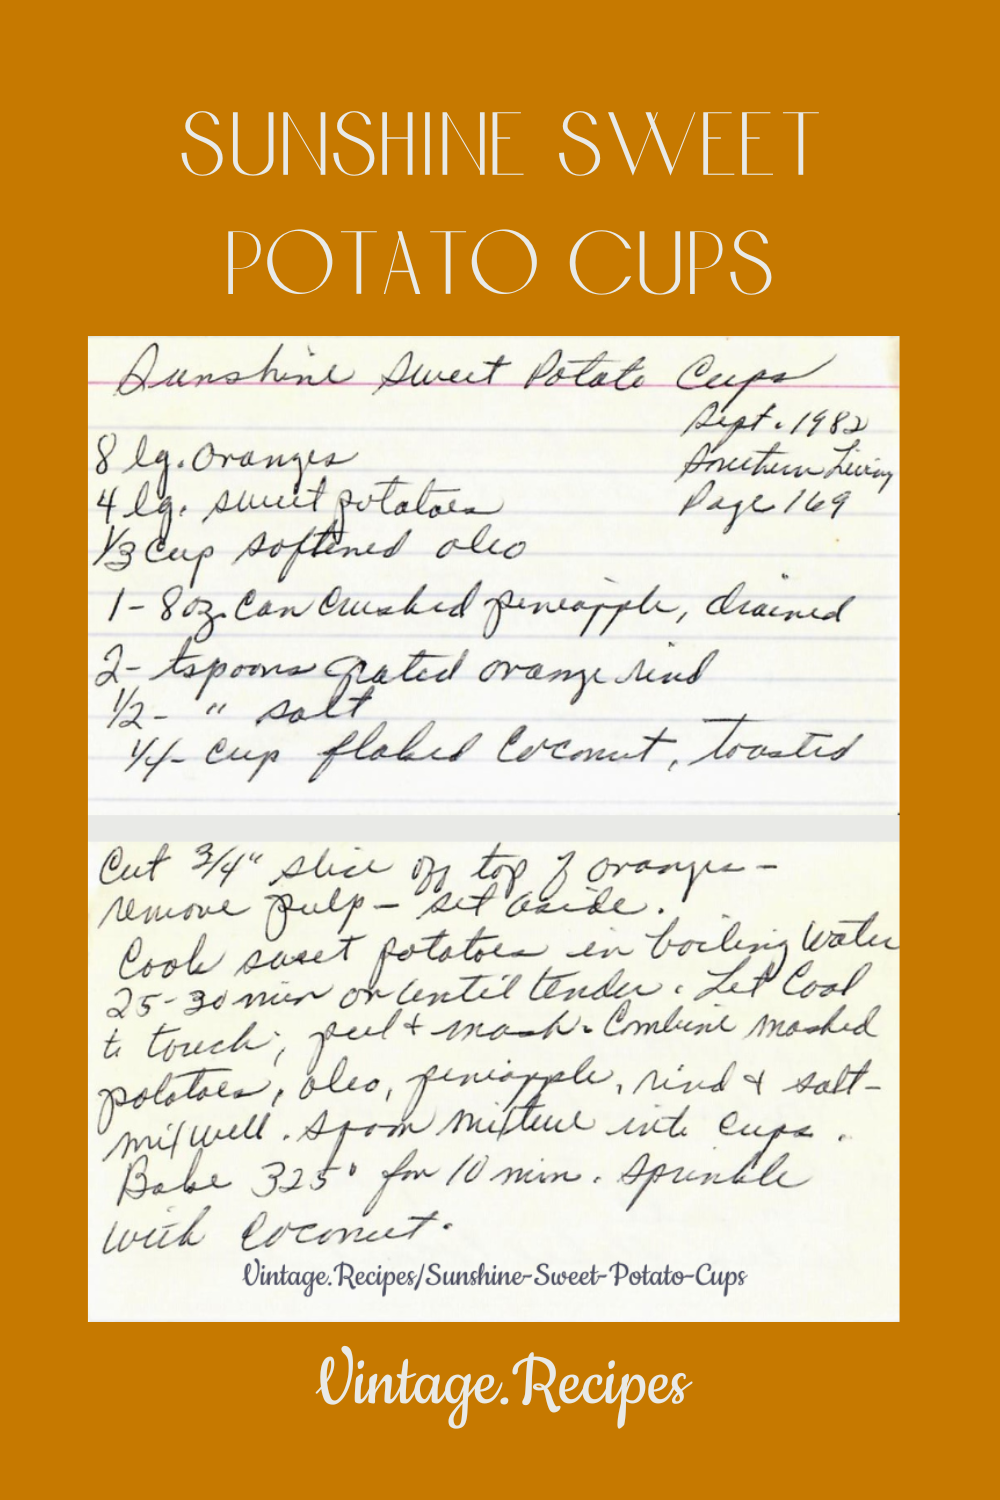 SUNSHINE SWEET
POTATO CUPS
Sunshine Sweet Potato Cups
Sept. 1982
8 lg. oranges
Southern Living
4 lg. sweet potatoes
Page 169
1/3 cup softened oleo
1 - 8 oz. can crushed pineapple, drained
2 - tspoons grated orange rind
1/2 - " salt
1/4 - cup flaked coconut, toasted
Cut 3/4" slice off top of oranges -
remove pulp - set aside.
Cook sweet potatoes in boiling water
25-30 min or until tender. Let cool
to touch; peel & mash. Combine mashed
potatoes, oleo, pineapple, rind & salt -
mix well. Spoon mixture into cups.
Bake 325° for 10 min. Sprinkle
with coconut.
Vintage.Recipes/Sunshine-Sweet-Potato-Cups
Vintage.Recipes